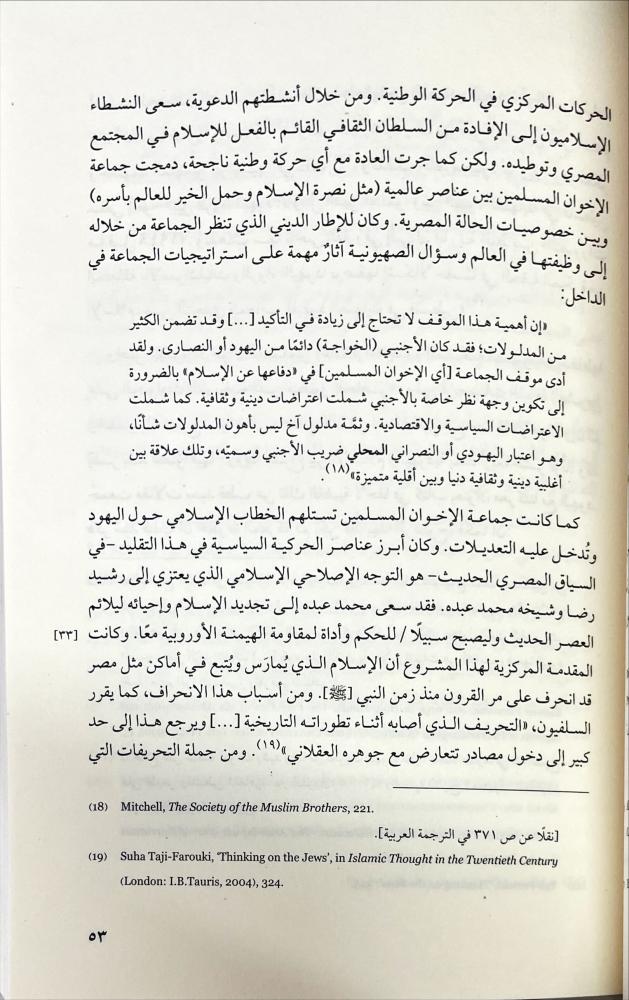 الحركات المركزي في الحركة الوطنية. ومن خلال أنشطتهم الدعوية، سعى النشطاء
الإسلاميون إلى الإفادة من السلطان الثقافي القائم بالفعل للإسلام في المجتمع
المصري وتوطيده. ولكن كما جرت العادة مع أي حركة وطنية ناجحة، دمجت جماعة
الإخوان المسلمين بين عناصر عالمية (مثل نصرة الإسلام وحمل الخير للعالم بأسره)
وبين خصوصيات الحالة المصرية. وكان للإطار الديني الذي تنظر الجماعة من خلاله
إلى وظيفتها في العالم وسؤال الصهيونية آثارٌ مهمة على استراتيجيات الجماعة في
الداخل:
«إن أهمية هذا الموقف لا تحتاج إلى زيادة في التأكيد [...] وقد تضمن الكثير
من المدلولات؛ فقد كان الأجنبي (الخواجة) دائمًا من اليهود أو النصارى. ولقد
أدى موقف الجماعة [أي الإخوان المسلمين] في «دفاعها عن الإسلام» بالضرورة
إلى تكوين وجهة نظر خاصة بالأجنبي شملت اعتراضات دينية وثقافية. كما شملت
الاعتراضات السياسية والاقتصادية. وثمَّة مدلول آخ ليس بأهون المدلولات شأنًا،
وهو اعتبار اليهودي أو النصراني المحلي ضريب الأجنبي وسميّه، وتلك علاقة بين
أغلبية دينية وثقافية دنيا وبين أقلية متميزة»(١٨).
كما كانت جماعة الإخوان المسلمين تستلهم الخطاب الإسلامي حول اليهود
وتُدخل عليه التعديلات. وكان أبرز عناصر الحركية السياسية في هذا التقليد -في
السياق المصري الحديث- هو التوجه الإصلاحي الإسلامي الذي يعتزي إلى رشيد
رضا وشيخه محمد عبده. فقد سعى محمد عبده إلى تجديد الإسلام وإحيائه ليلائم
العصر الحديث وليصبح سبيلًا / للحكم وأداة لمقاومة الهيمنة الأوروبية معًا. وكانت [٣٣]
المقدمة المركزية لهذا المشروع أن الإسلام الذي يُمارَس ويُتبع في أماكن مثل مصر
قد انحرف على مر القرون منذ زمن النبي [ﷺ]. ومن أسباب هذا الانحراف، كما يقرر
السلفيون، «التحريف الذي أصابه أثناء تطوراته التاريخية [...] ويرجع هذا إلى حد
كبير إلى دخول مصادر تتعارض مع جوهره العقلاني»(١٩). ومن جملة التحريفات التي
(18) Mitchell, The Society of the Muslim Brothers, 221.
[نقلًا عن ص ٣٧١ في الترجمة العربية].
(19) Suha Taji-Farouki, 'Thinking on the Jews', in Islamic Thought in the Twentieth Century
(London: I.B.Tauris, 2004), 324.
٥٣